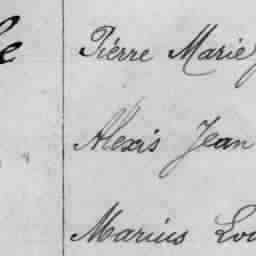 Pierre Marie
Alexis Jean
Marius